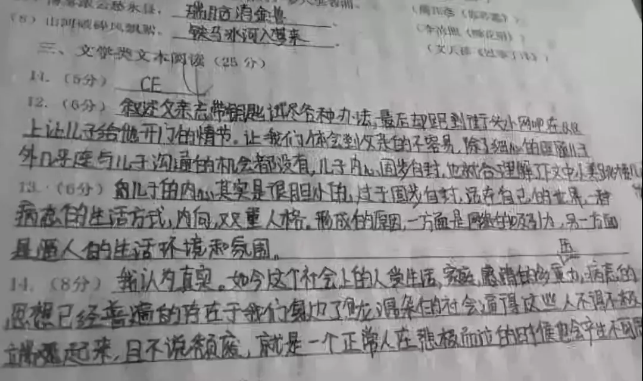 薄雾浓云愁永昼，瑞脑消金兽
(5) 山河破碎风飘絮，铁马冰河入梦来
三、文学类文本阅读 (25分)
11. (5分) CE
12. (6分) 叙述父亲忘带钥匙试尽各种办法,最后却跑到街头小网吧在QQ
上让儿子给他开门的情节。让我们体会到父亲的不容易,除了细心的照顾儿子
外几乎连与儿子沟通的机会都没有,儿子内心固步自封,也就合理解下文中小
13. (6分) 的儿子的内心其实是很胆小的,过于固步自封,活在自己的世界,一种
病态的生活方式,内向,双重人格。形成的原因,一方面是网络的吸引力,另一方面
是逼人的生活环境和氛围。
14. (8分) 我认为真实。如今这个社会上的人受生活,家庭,感情的多重力,病态的
思想已经普遍的存在于我们身边了,复杂的社会逼得这些人不得不
起来,且不说颓废,就是一个正常人在悲极而泣的时候也会产生不